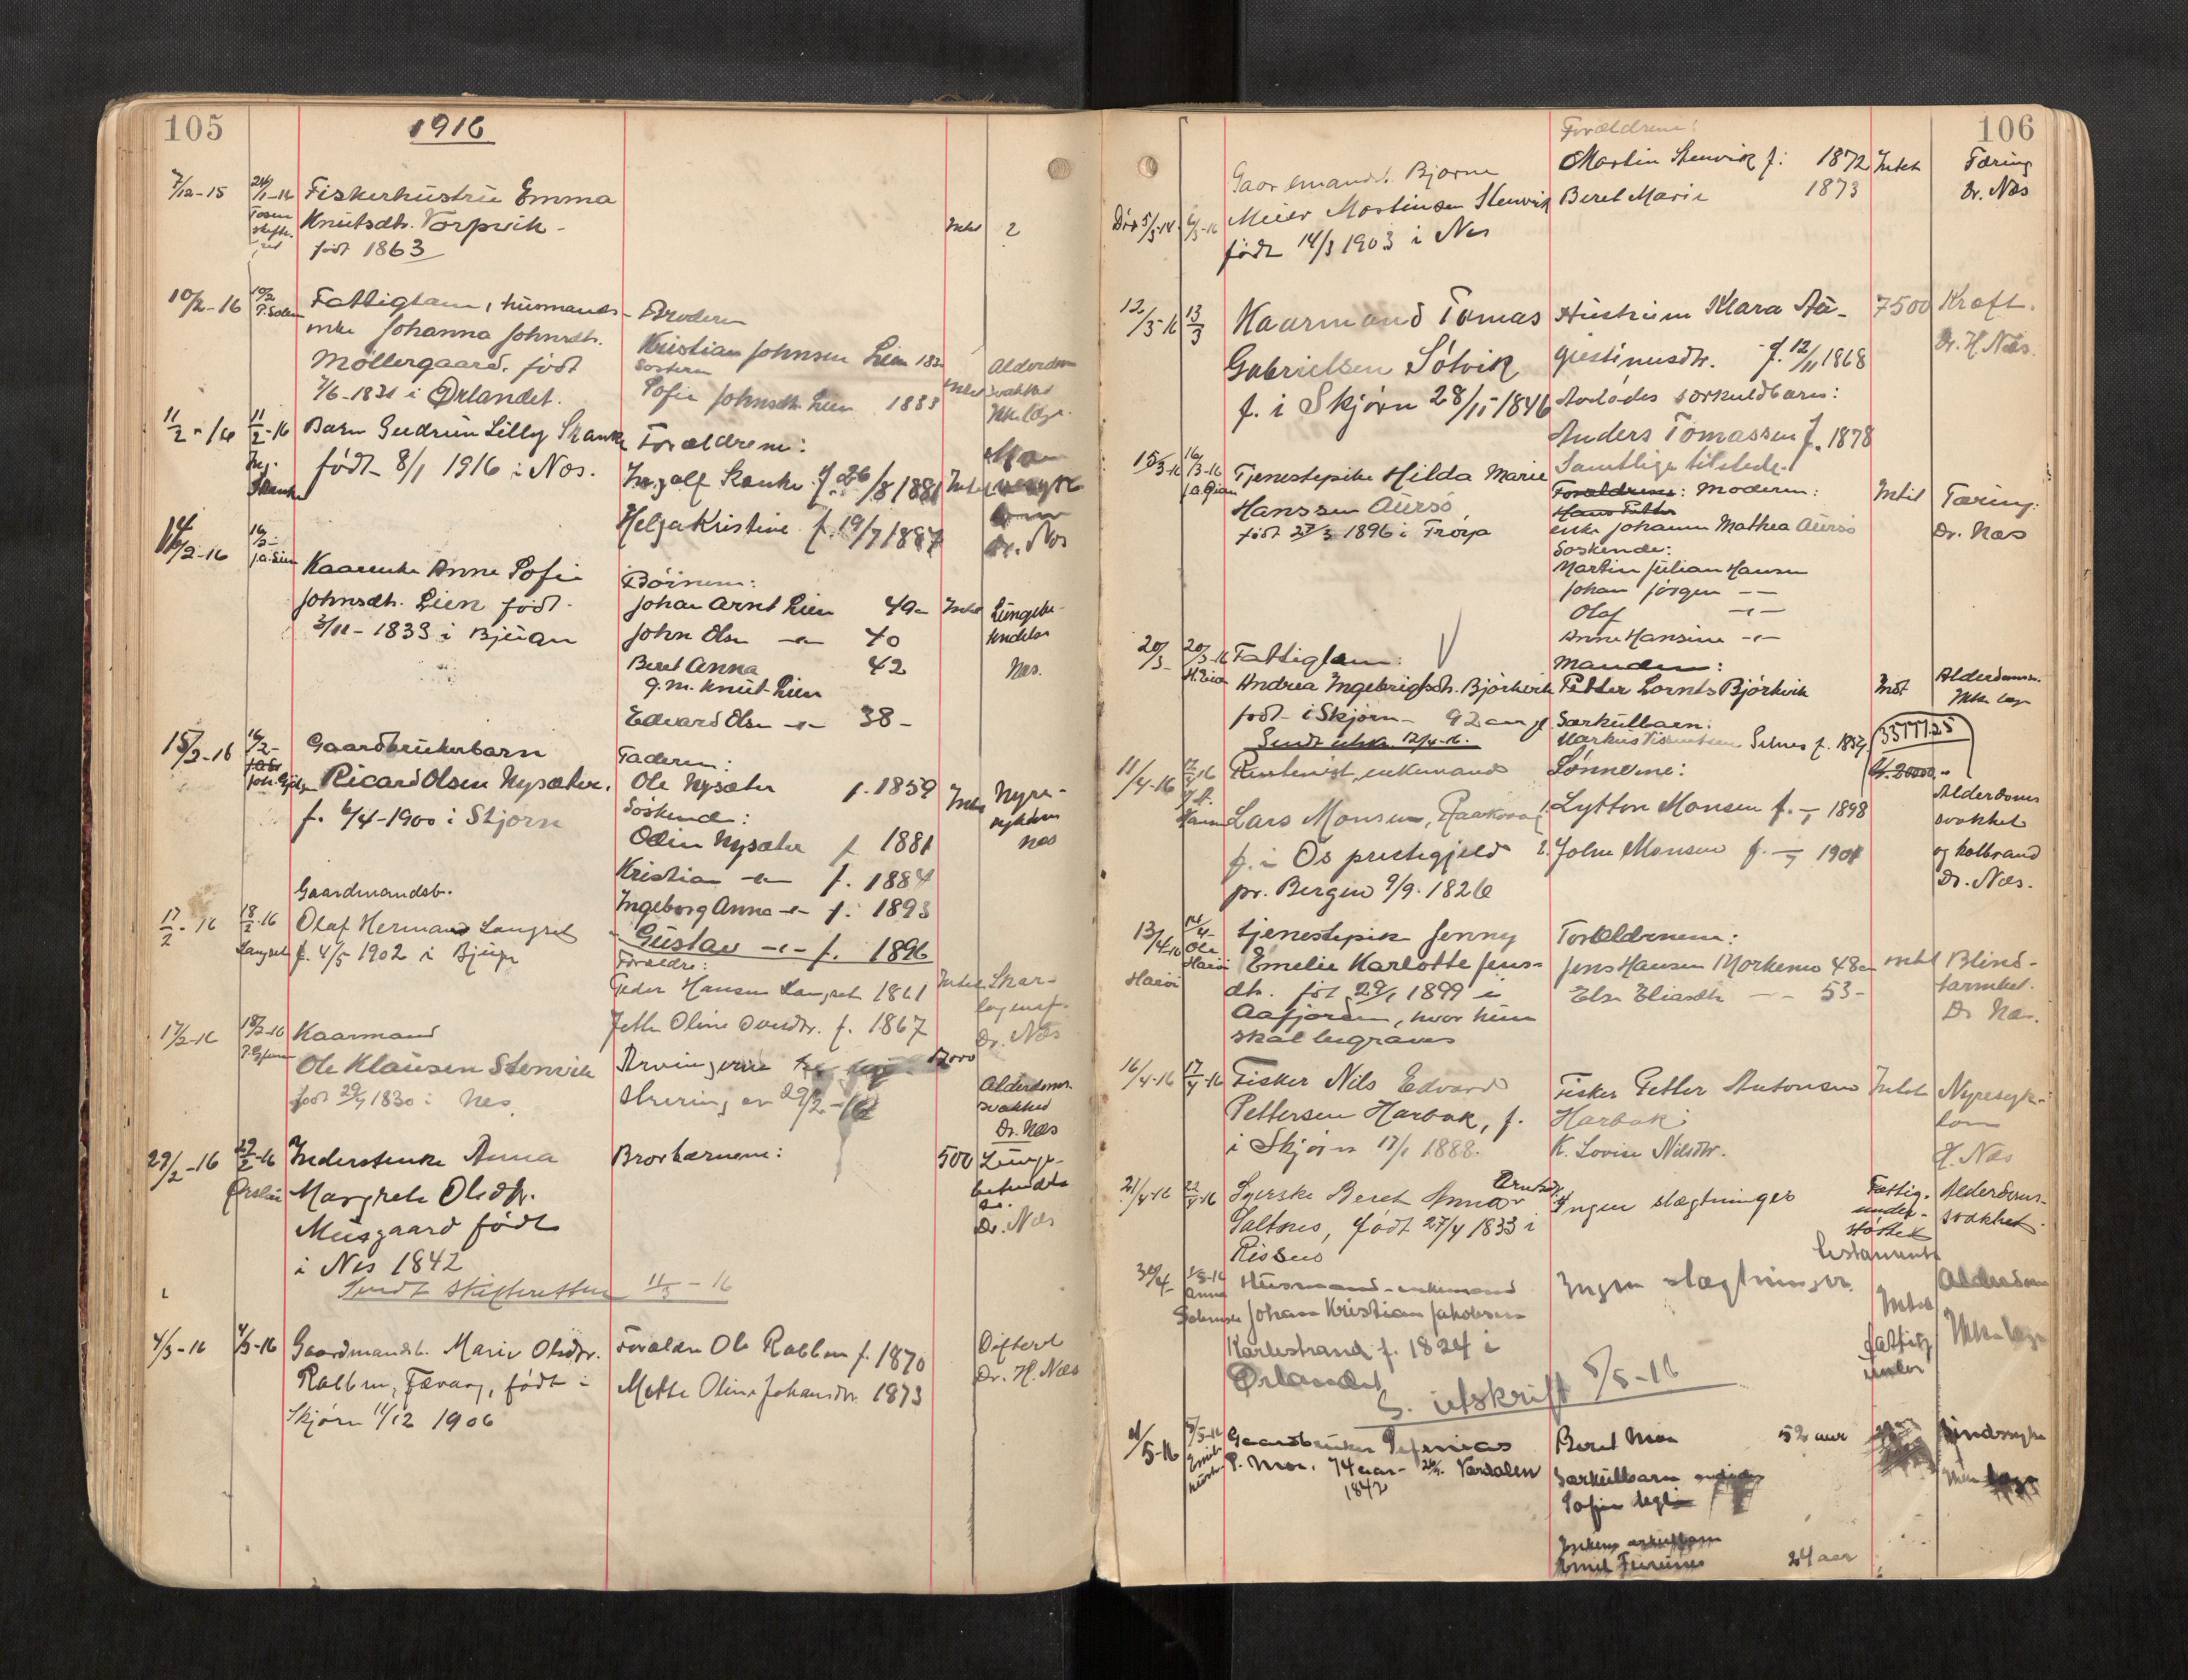 105
1916
7/12-15
Fiskerhustru Emma
Knutsdtr.
født 1863
Intet
2
10/2-16
10/2
Fattiglem, husmands-
enke Johanna Johnsdtr.
Møllergaard, født
i Ørlandet.
Broderen
Kristian Johnsen Lien
Søsteren
Sofie Johnsdtr. Lien 1833
Intet
Alderdoms
svakhet
Ikke læge.
11/2-16
11/2-16
Ing. Skanke
Barn Gudrun Lilly Skanke
født 8/1 1916 i Nes.
Forældrene:
Ingolf Skanke f. 26/8 1881
Helga Kristine f. 19/7 1887
Intet
Dr. Næs
14/2-16
J.A. Lien
Kaarenke Anne Sofie
Johnsdtr. Lien født
3/11-1833 i Bjugn
Børnene:
Johan Arnt Lien 49
John Olsen -"- 40
Beret Anna 42
g.m. Knut Lien
Edvard Olsen -"- 38-
Intet
Lungebe-
tendelse
Næs.
15/2-16
16/2-
Gaardbrukerbarn
Ricard Olsen Nysæter.
f. 6/4-1900 i Skjørn
Faderen:
Ole Nysæter f. 1859
Søskende:
Odin Nysæter f. 1881
Kristian -"- f. 1884
Ingeborg Anna -"- f. 1893
Gustav -"- f. 1896
Intet
Nyre-
sykdom
Næs
17/2-16
18/2-16
Langset
Gaardmandsb.
Olaf Hermand Langset
f. 4/5 1902 i Bjugn
Forældre:
Peder Hansen Langset 1861
Jette Oline f. 1867
Intet
Skar-
lagensf.
Dr. Næs
17/2-16
18/2-16
Kaarmand
Ole Klausen Stenvik
født 29/ 1830 i Nes.
Arvingerne
29/2-16
Alderdoms-
svakhed
Dr. Næs
29/2-16
29/2-16
Inderstenke Anna
Margrete Olsdtr.
Musgaard født
i Nes 1842
Sendt skifteretten 11/3-16
Brorbørnene:
500
Lunge-
betændelse
Dr. Næs
4/3-16
4/3-16
Gaardmandsb. Marie Olsdtr.
Rabben, Fevaag, født i
Skjørn 11/12 1906
Forældre Ole Rabben f. 1870
Mette Oline Johansdtr. 1873
Difteri
Dr. H. Næs
106
Død 5/3-16
6/3-16
Gaardmands. Bjarne
Meier Martinsen Stenvik
født 14/3 1903 i Nes
Forældrene:
Martin Stenvik f. 1872
Beret Marie 1873
Intet
Tæring
Dr. Næs
12/3-16
13/3
Kaarmand Tomas
Gabrielsen Søtvik
f. i Skjørn 28/11 1846
Hustruen Klara Au-
gustinusdtr. f. 12/11 1868
Avdødes særkuldbarn:
Anders Tomassen f. 1878
Samtlige tilstede.
7500
Kræft.
Dr. H. Næs.
15/3-16
16/3-16
Tjenestepike Hilda Marie
Hanssen Aursø
født 27/3 1896 i Frøya
Forældrene: Moderen:
enke Johanna Mathea Aursø
Søskende:
Martin Julian Hansen
Johan Jørgen -"-
Olaf -"-
Anne Hansine -"-
Intet
Tæring.
Dr. Næs
20/3-
20/3-16
Fattiglem:
Andrea Ingebrigtsdtr. Bjørkvik
født i Skjørn - 92 aar gl.
Sendt utskr. 12/4-16.
Manden:
Petter Lornts Bjørkvik
Særkulbarn:
Selnes f. 1854
Intet
Alderdomssv.
Ikke læge
11/4-16
12/4-16
Rentenist, enkemand
Lars Monsen, Raakvaag
f. i Os prestegjeld
pr. Bergen 9/9. 1826
Sønnerne:
1. Lytton Monsen f. 1898
2. John Monsen f. 1901
357725
20000
Alderdoms
svakhet
og kolbrand
Dr. Næs.
13/4-16
14/4-
Ole
Tjenestepik Jenny
Emelie Karlotte Jens-
dtr. fød 29/1 1899 i
Aafjorden, hvor hun
skal begraves
Forældrenene:
Jens Hansen Morkemo 48
Else Eliasdtr -"- 53-
Intet
Blind-
tarmbet.
Dr. Næs.
16/4-16
17/4-16
Fisker Nils Edvard
Pettersen Harbak, f.
i Skjørn 17/1 1888.
Fisker Petter Antonsen
Harbak
K. Lovise Nilsdtr.
Intet
Nyresyk-
dom
H. Næs
21/4-16
22/4-16
Syerske Beret Anna Arntsdtr.
Saltnes, født 27/4 1833 i
Rissen
Ingen slægtninger
Fattig-
under-
støttet
testamente
Alderdoms-
svakhet
30/4-
1/5-16
Husmand - enkemand
Johan Kristian Jakobsen
Karlestrand f. 1824 i
Ørlandet
S. utskrift 5/5-16
Ingen slægtninger.
Intet
fattig
under
Alderdom
Ikke læge
4/5-16
5/5-16
Gaardbruker
P. Moe. 74 aar - Værdalen
1842
Beret Moe 52 aar
Særkullbarn
24 aar
Sindssyke